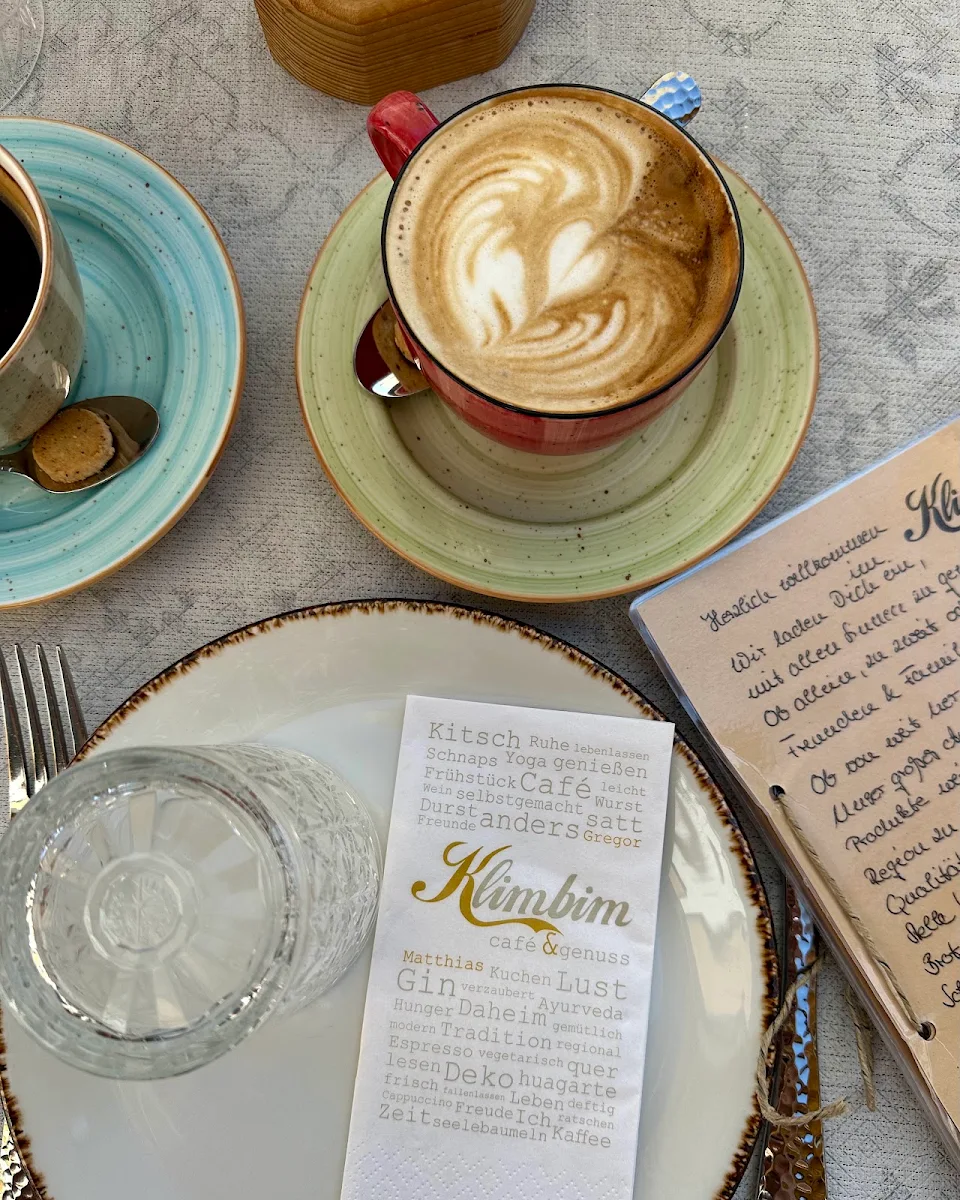 Kitsch Ruhe lebenlassen
Schnaps Yoga genießen
Frühstück Café leicht
Wein selbstgemacht Wurst
Durst anders satt
Freunde Gregor
Klimbim
café & genuss
Matthias Kuchen Lust
Gin verzaubert Ayurveda
Hunger Daheim gemütlich
modern Tradition regional
Espresso vegetarisch quer
lesen Deko huagarte
frisch fallenlassen Leben deftig
Cappuccino Freude Ich ratschen
Zeit seelebaumeln Kaffee
Kli
Herzlich willkommen
im
Wir laden Dich ein,
mit allen Sinnen zu
Ob allein, zu zweit
Freunden &
Ob von weit
Unser großes
Produkte
Region zu
Qualität